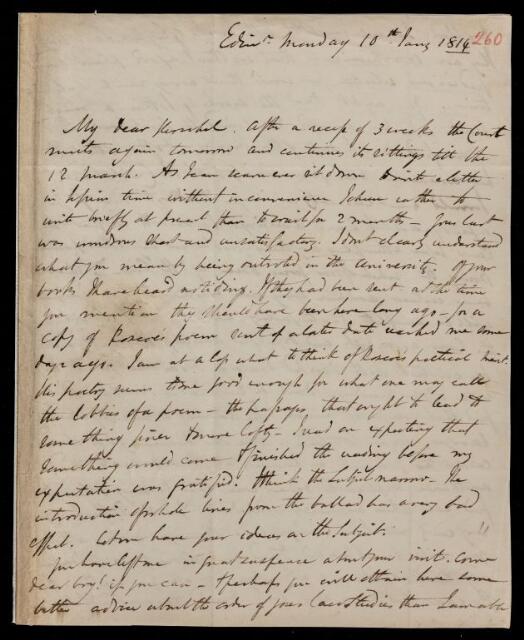 Edinr. Monday 10th Jany 1814 260
My dear Herschel. After a recess of 3 weeks the Court
meets again tomorrow and continues its sittings till the
12 March. As I can scarce ever sit down to write a letter
in session time without inconvenience I chuse rather to
write briefly at present than to wait for 2 months – Your last
was wondrous short and unsatisfactory. I dont clearly understand
what you mean by being outvoted in the University. Of your
books I have heard no tidings. If they had been sent at the time
you mention they should have been here long ago – for a
copy of Roscoe's poem sent of a later date reached me some
days ago. I am at a loss what to think of Roscoe's poetical
His poetry seems to me good enough for what one may call
the lobbies of a poem – the passages that ought to lead to
something finer & more lofty – I read on expecting that
something would come & finished the reading before my
expectation was gratified. I think the subject narrow. The
introduction of whole lines from the ballad has a very bad
effect. Let me have your ideas on the subject.
You have left me in great suspense about your visit. Come
dear boy! if you can – & perhaps you will obtain here some
better advice about the order of your Law Studies than I am able